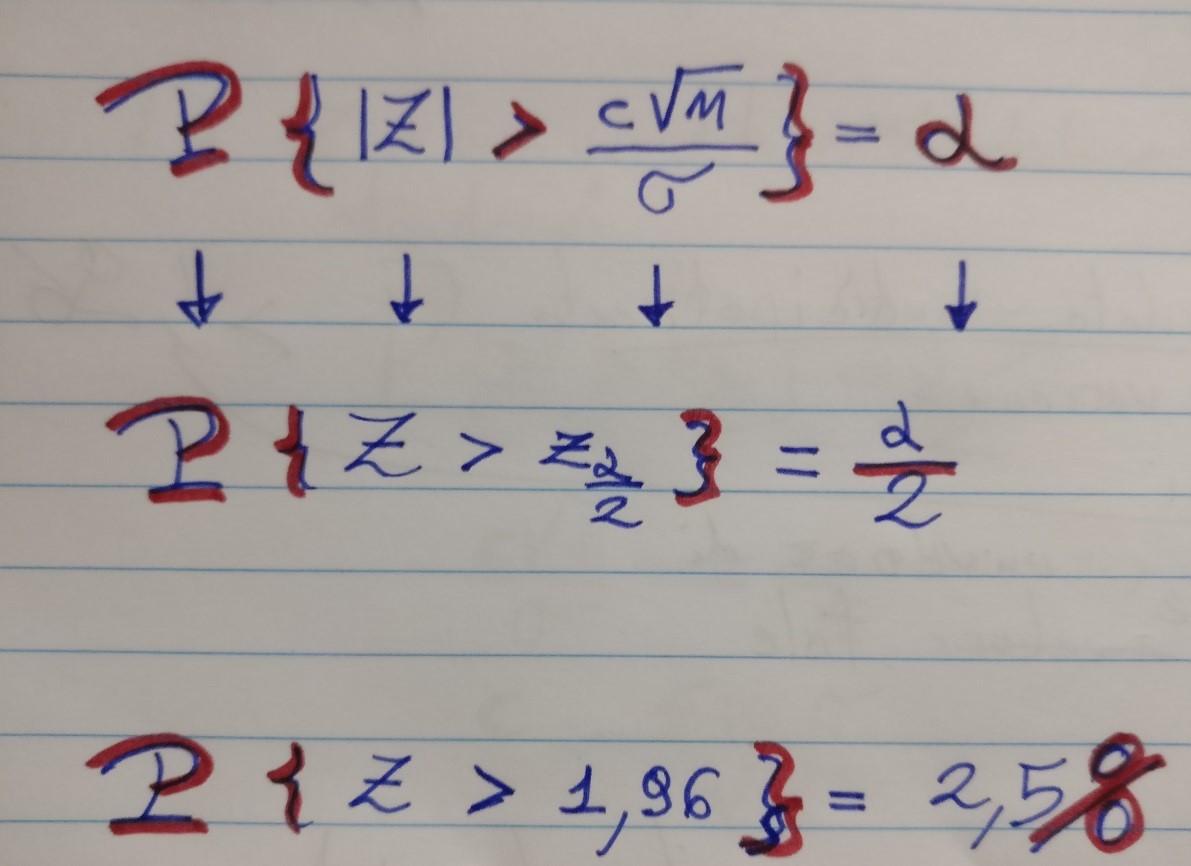 P { |Z| > c√n / σ } = α
↓ ↓ ↓ ↓
P { Z > z_{α/2} } = α/2
P { Z > 1,96 } = 2,5%